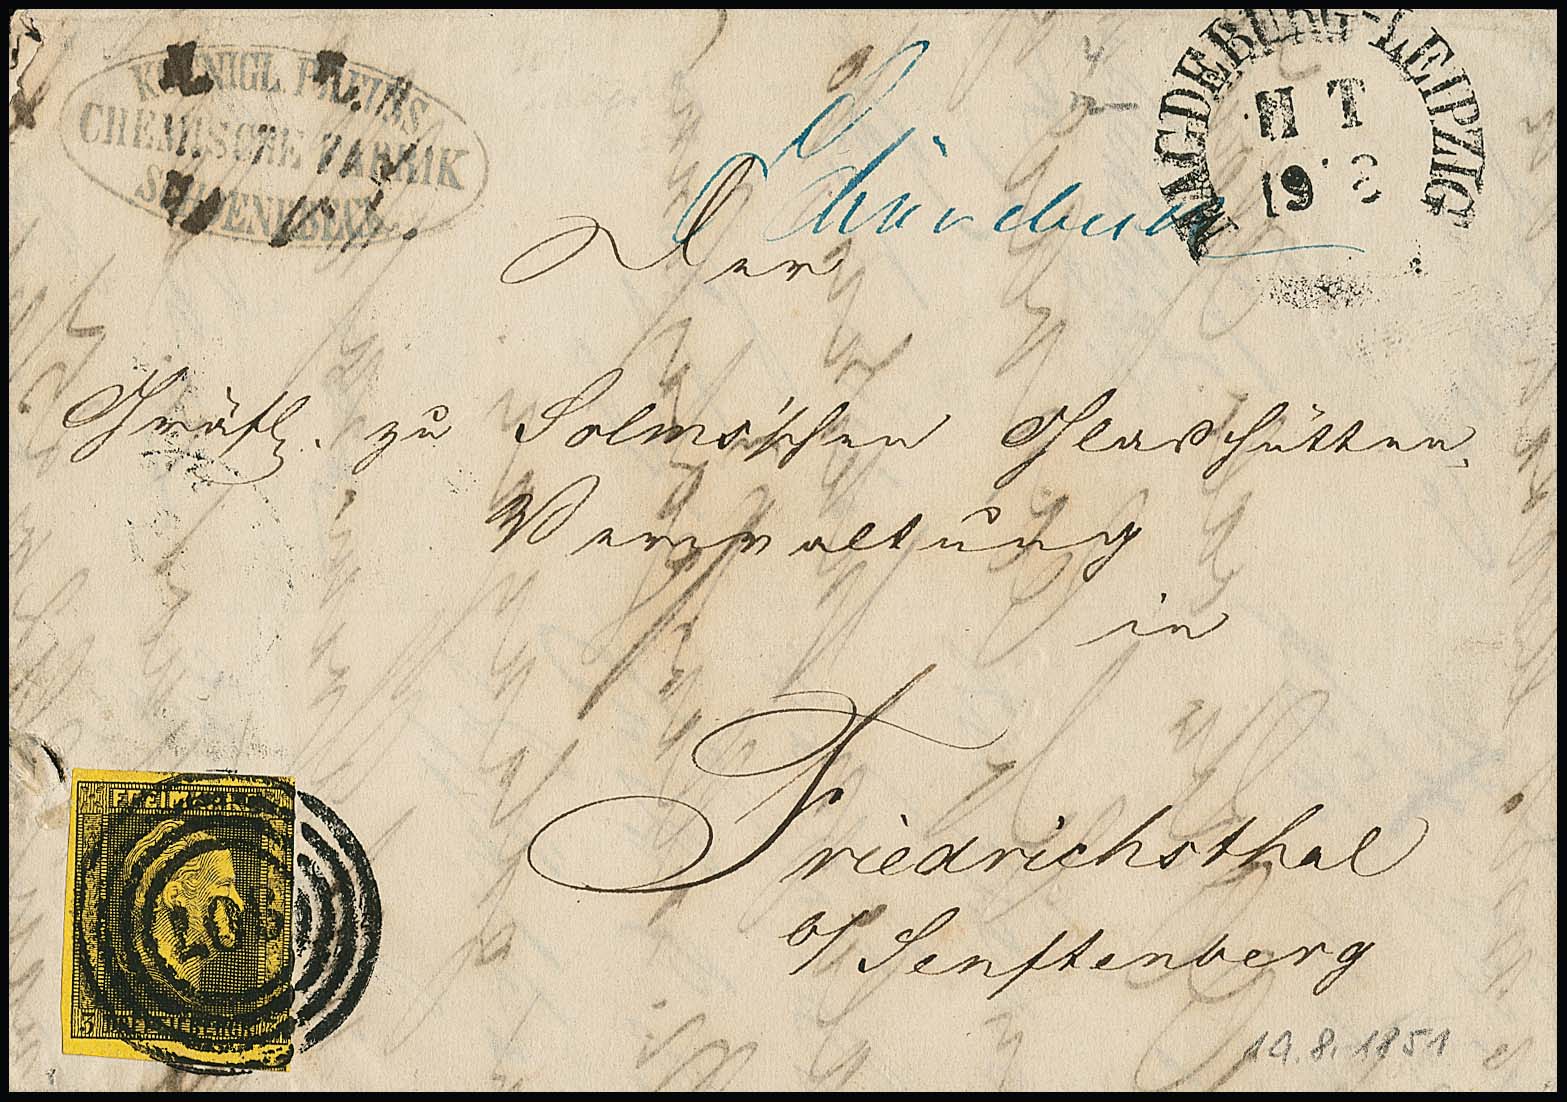 KOENIGL PREUSS
CHEMISCHE FABRIK
SCHOENEBECK
MAGDEBURG-LEIPZIG
II T
19 8
Schönebeck
Der
Gräfl. zu Solms'schen Glashütten
Verwaltung
in
Friedrichsthal
b/ Senftenberg
FREIMARKE
3 SILBERGR. 3
19.8.1851